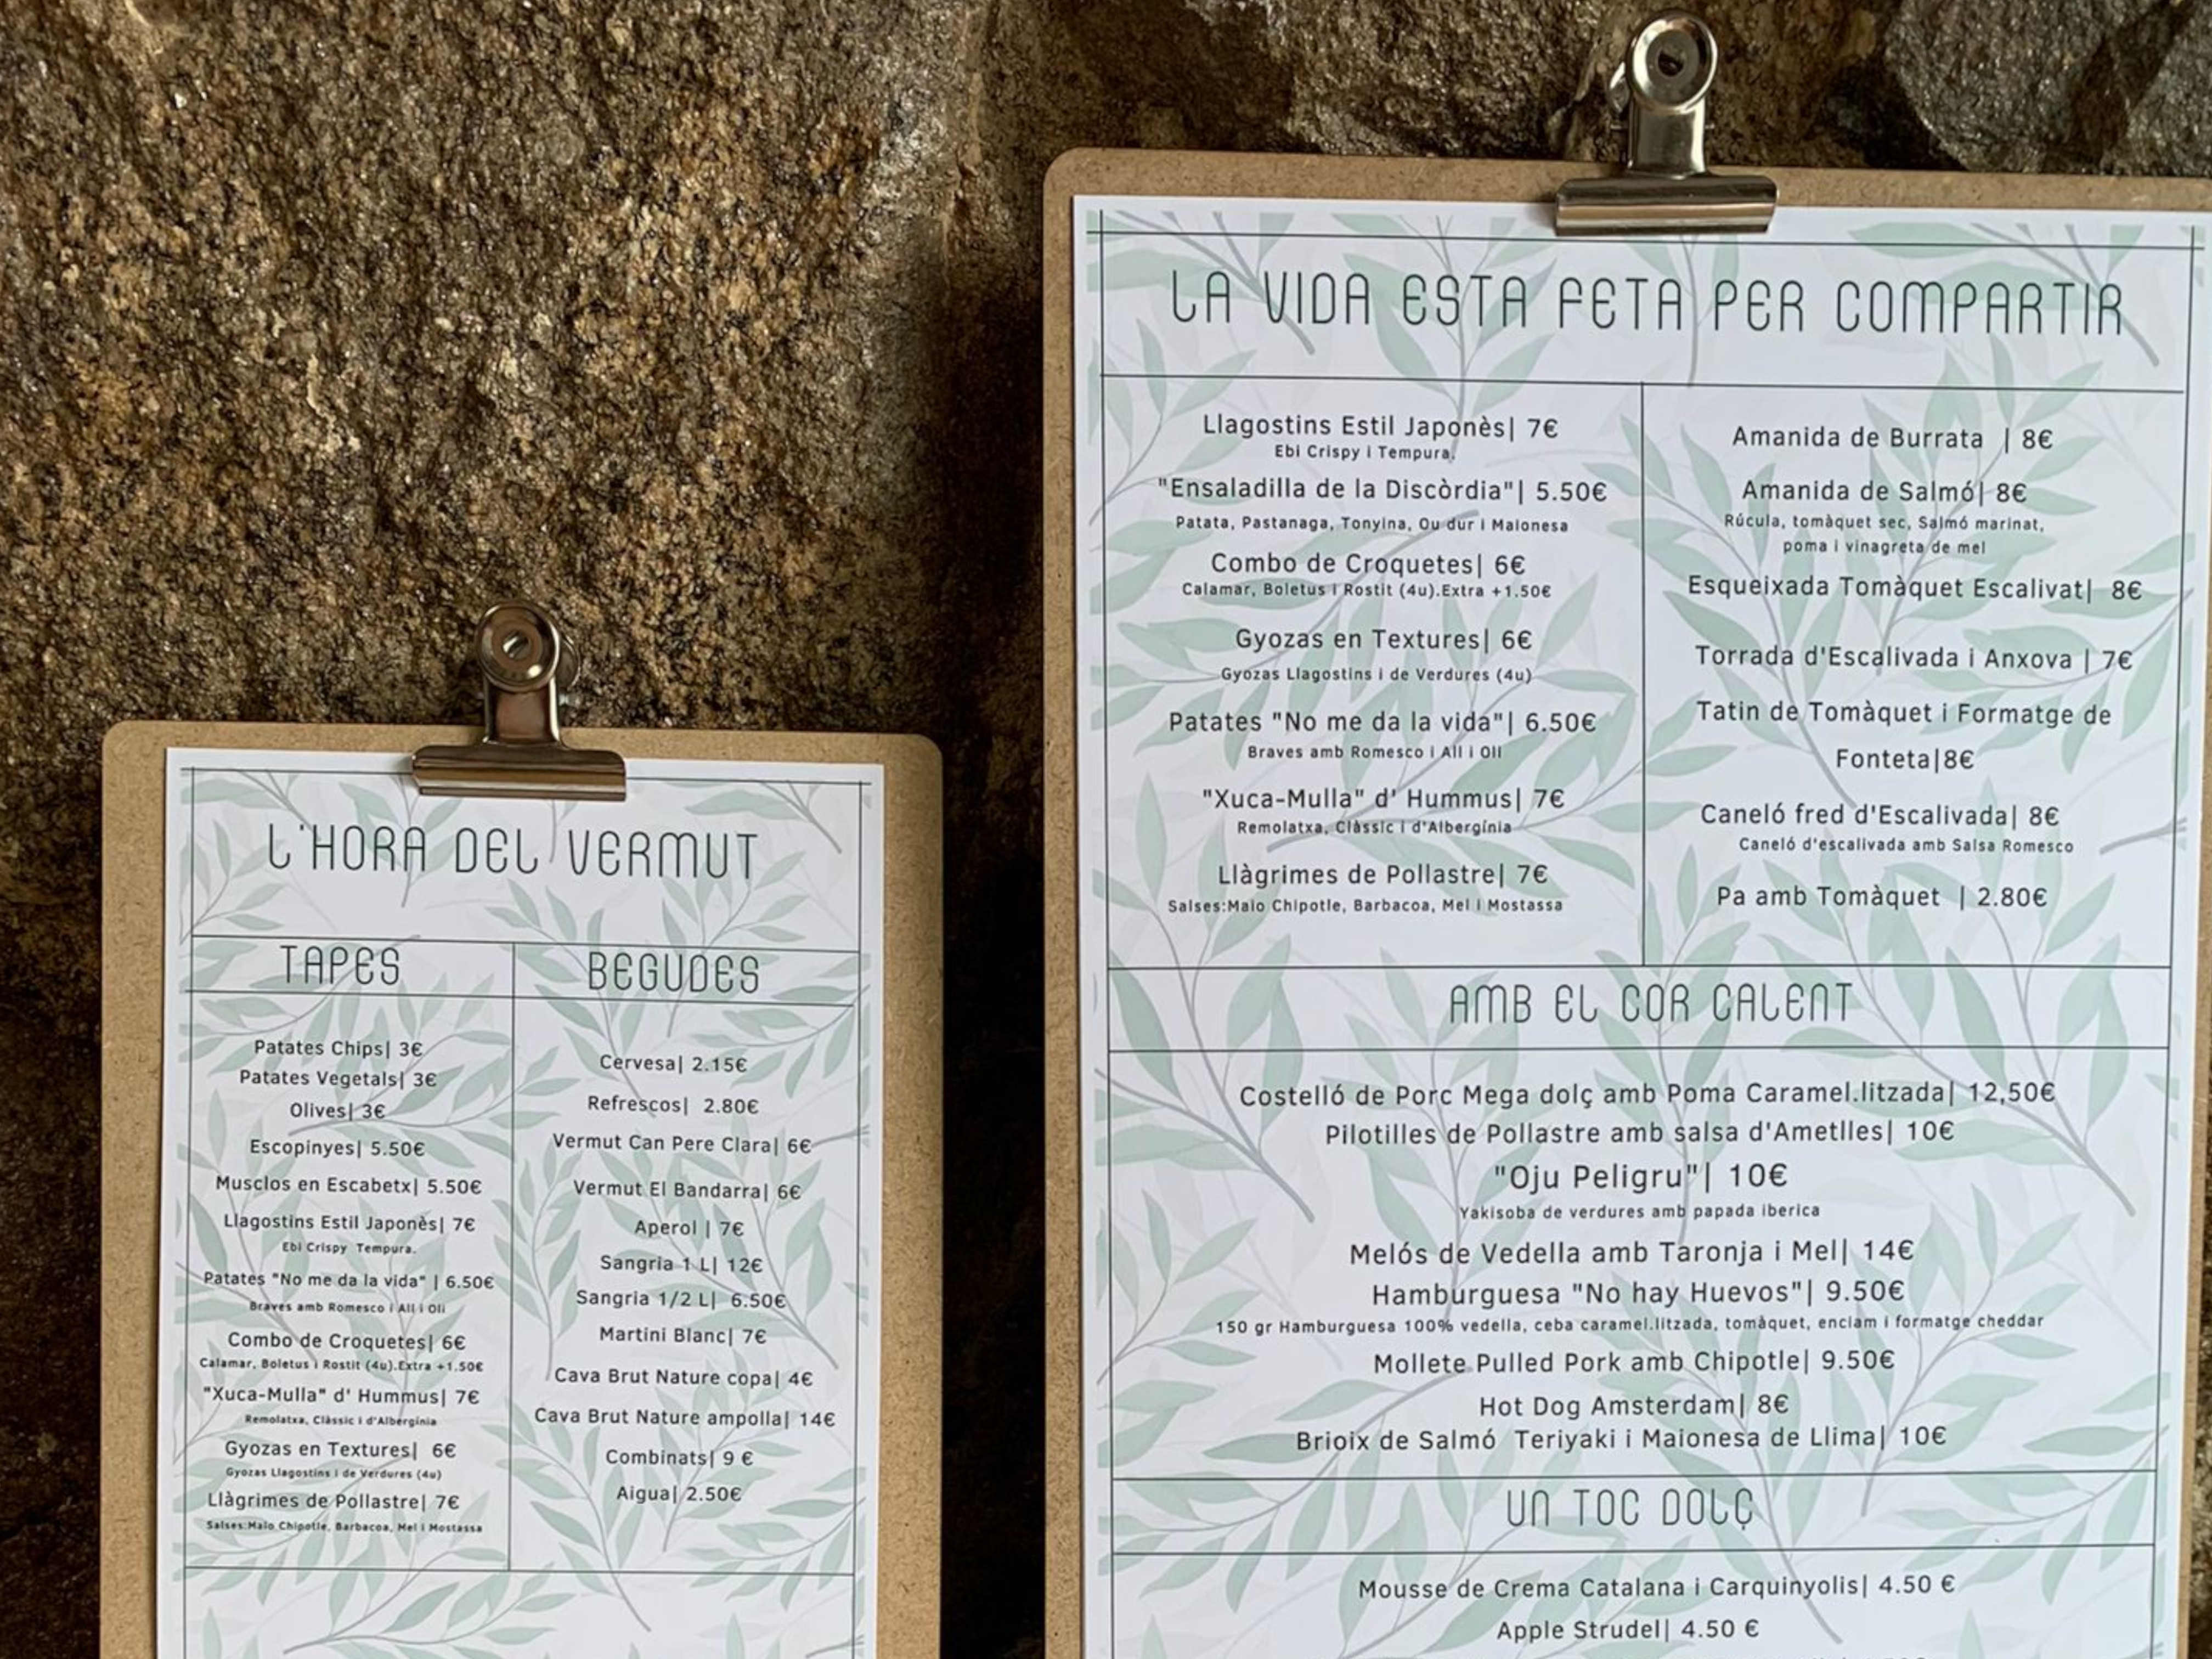 L'HORA DEL VERMUT
TAPES
Patates Chips| 3€
Patates Vegetals| 3€
Olives| 3€
Escopinyes| 5.50€
Musclos en Escabetx| 5.50€
Llagostins Estil Japonès| 7€
Ebi Crispy Tempura.
Patates "No me da la vida" | 6.50€
Braves amb Romesco i All i Oli
Combo de Croquetes| 6€
Calamar, Boletus i Rostit (4u).Extra +1.50€
"Xuca-Mulla" d' Hummus| 7€
Remolatxa, Clàssic i d'Albergínia
Gyozas en Textures| 6€
Gyozas Llagostins i de Verdures (4u)
Llàgrimes de Pollastre| 7€
Salses:Maio Chipotle, Barbacoa, Mel i Mostassa
BEGUDES
Cervesa| 2.15€
Refrescos| 2.80€
Vermut Can Pere Clara| 6€
Vermut El Bandarra| 6€
Aperol | 7€
Sangria 1 L| 12€
Sangria 1/2 L| 6.50€
Martini Blanc| 7€
Cava Brut Nature copa| 4€
Cava Brut Nature ampolla| 14€
Combinats| 9 €
Aigua| 2.50€
LA VIDA ESTA FETA PER COMPARTIR
Llagostins Estil Japonès| 7€
Ebi Crispy i Tempura.
"Ensaladilla de la Discòrdia"| 5.50€
Patata, Pastanaga, Tonyina, Ou dur i Maionesa
Combo de Croquetes| 6€
Calamar, Boletus i Rostit (4u).Extra +1.50€
Gyozas en Textures| 6€
Gyozas Llagostins i de Verdures (4u)
Patates "No me da la vida"| 6.50€
Braves amb Romesco i All i Oli
"Xuca-Mulla" d' Hummus| 7€
Remolatxa, Clàssic i d'Albergínia
Llàgrimes de Pollastre| 7€
Salses:Maio Chipotle, Barbacoa, Mel i Mostassa
Amanida de Burrata | 8€
Amanida de Salmó| 8€
Rúcula, tomàquet sec, Salmó marinat,
poma i vinagreta de mel
Esqueixada Tomàquet Escalivat| 8€
Torrada d'Escalivada i Anxova | 7€
Tatin de Tomàquet i Formatge de
Fonteta|8€
Caneló fred d'Escalivada| 8€
Caneló d'escalivada amb Salsa Romesco
Pa amb Tomàquet | 2.80€
AMB EL COR CALENT
Costelló de Porc Mega dolç amb Poma Caramel.litzada| 12,50€
Pilotilles de Pollastre amb salsa d'Ametlles| 10€
"Oju Peligru"| 10€
Yakisoba de verdures amb papada iberica
Melós de Vedella amb Taronja i Mel| 14€
Hamburguesa "No hay Huevos"| 9.50€
150 gr Hamburguesa 100% vedella, ceba caramel.litzada, tomàquet, enciam i formatge cheddar
Mollete Pulled Pork amb Chipotle| 9.50€
Hot Dog Amsterdam| 8€
Brioix de Salmó Teriyaki i Maionesa de Llima| 10€
UN TOC DOLÇ
Mousse de Crema Catalana i Carquinyolis| 4.50 €
Apple Strudel| 4.50 €